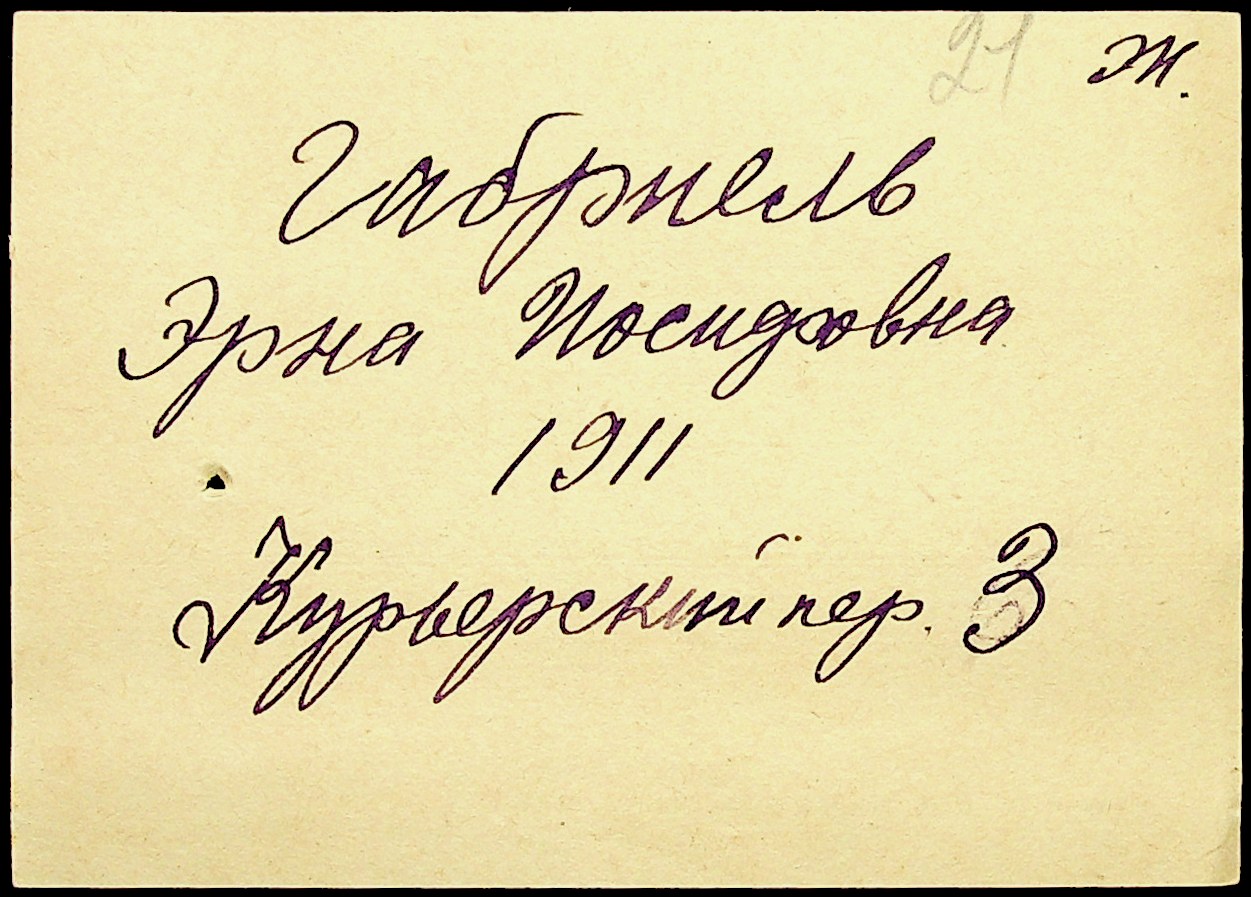 21 ж.
Габриель
Эрна Иосифовна
1911
Курьерский пер. 3